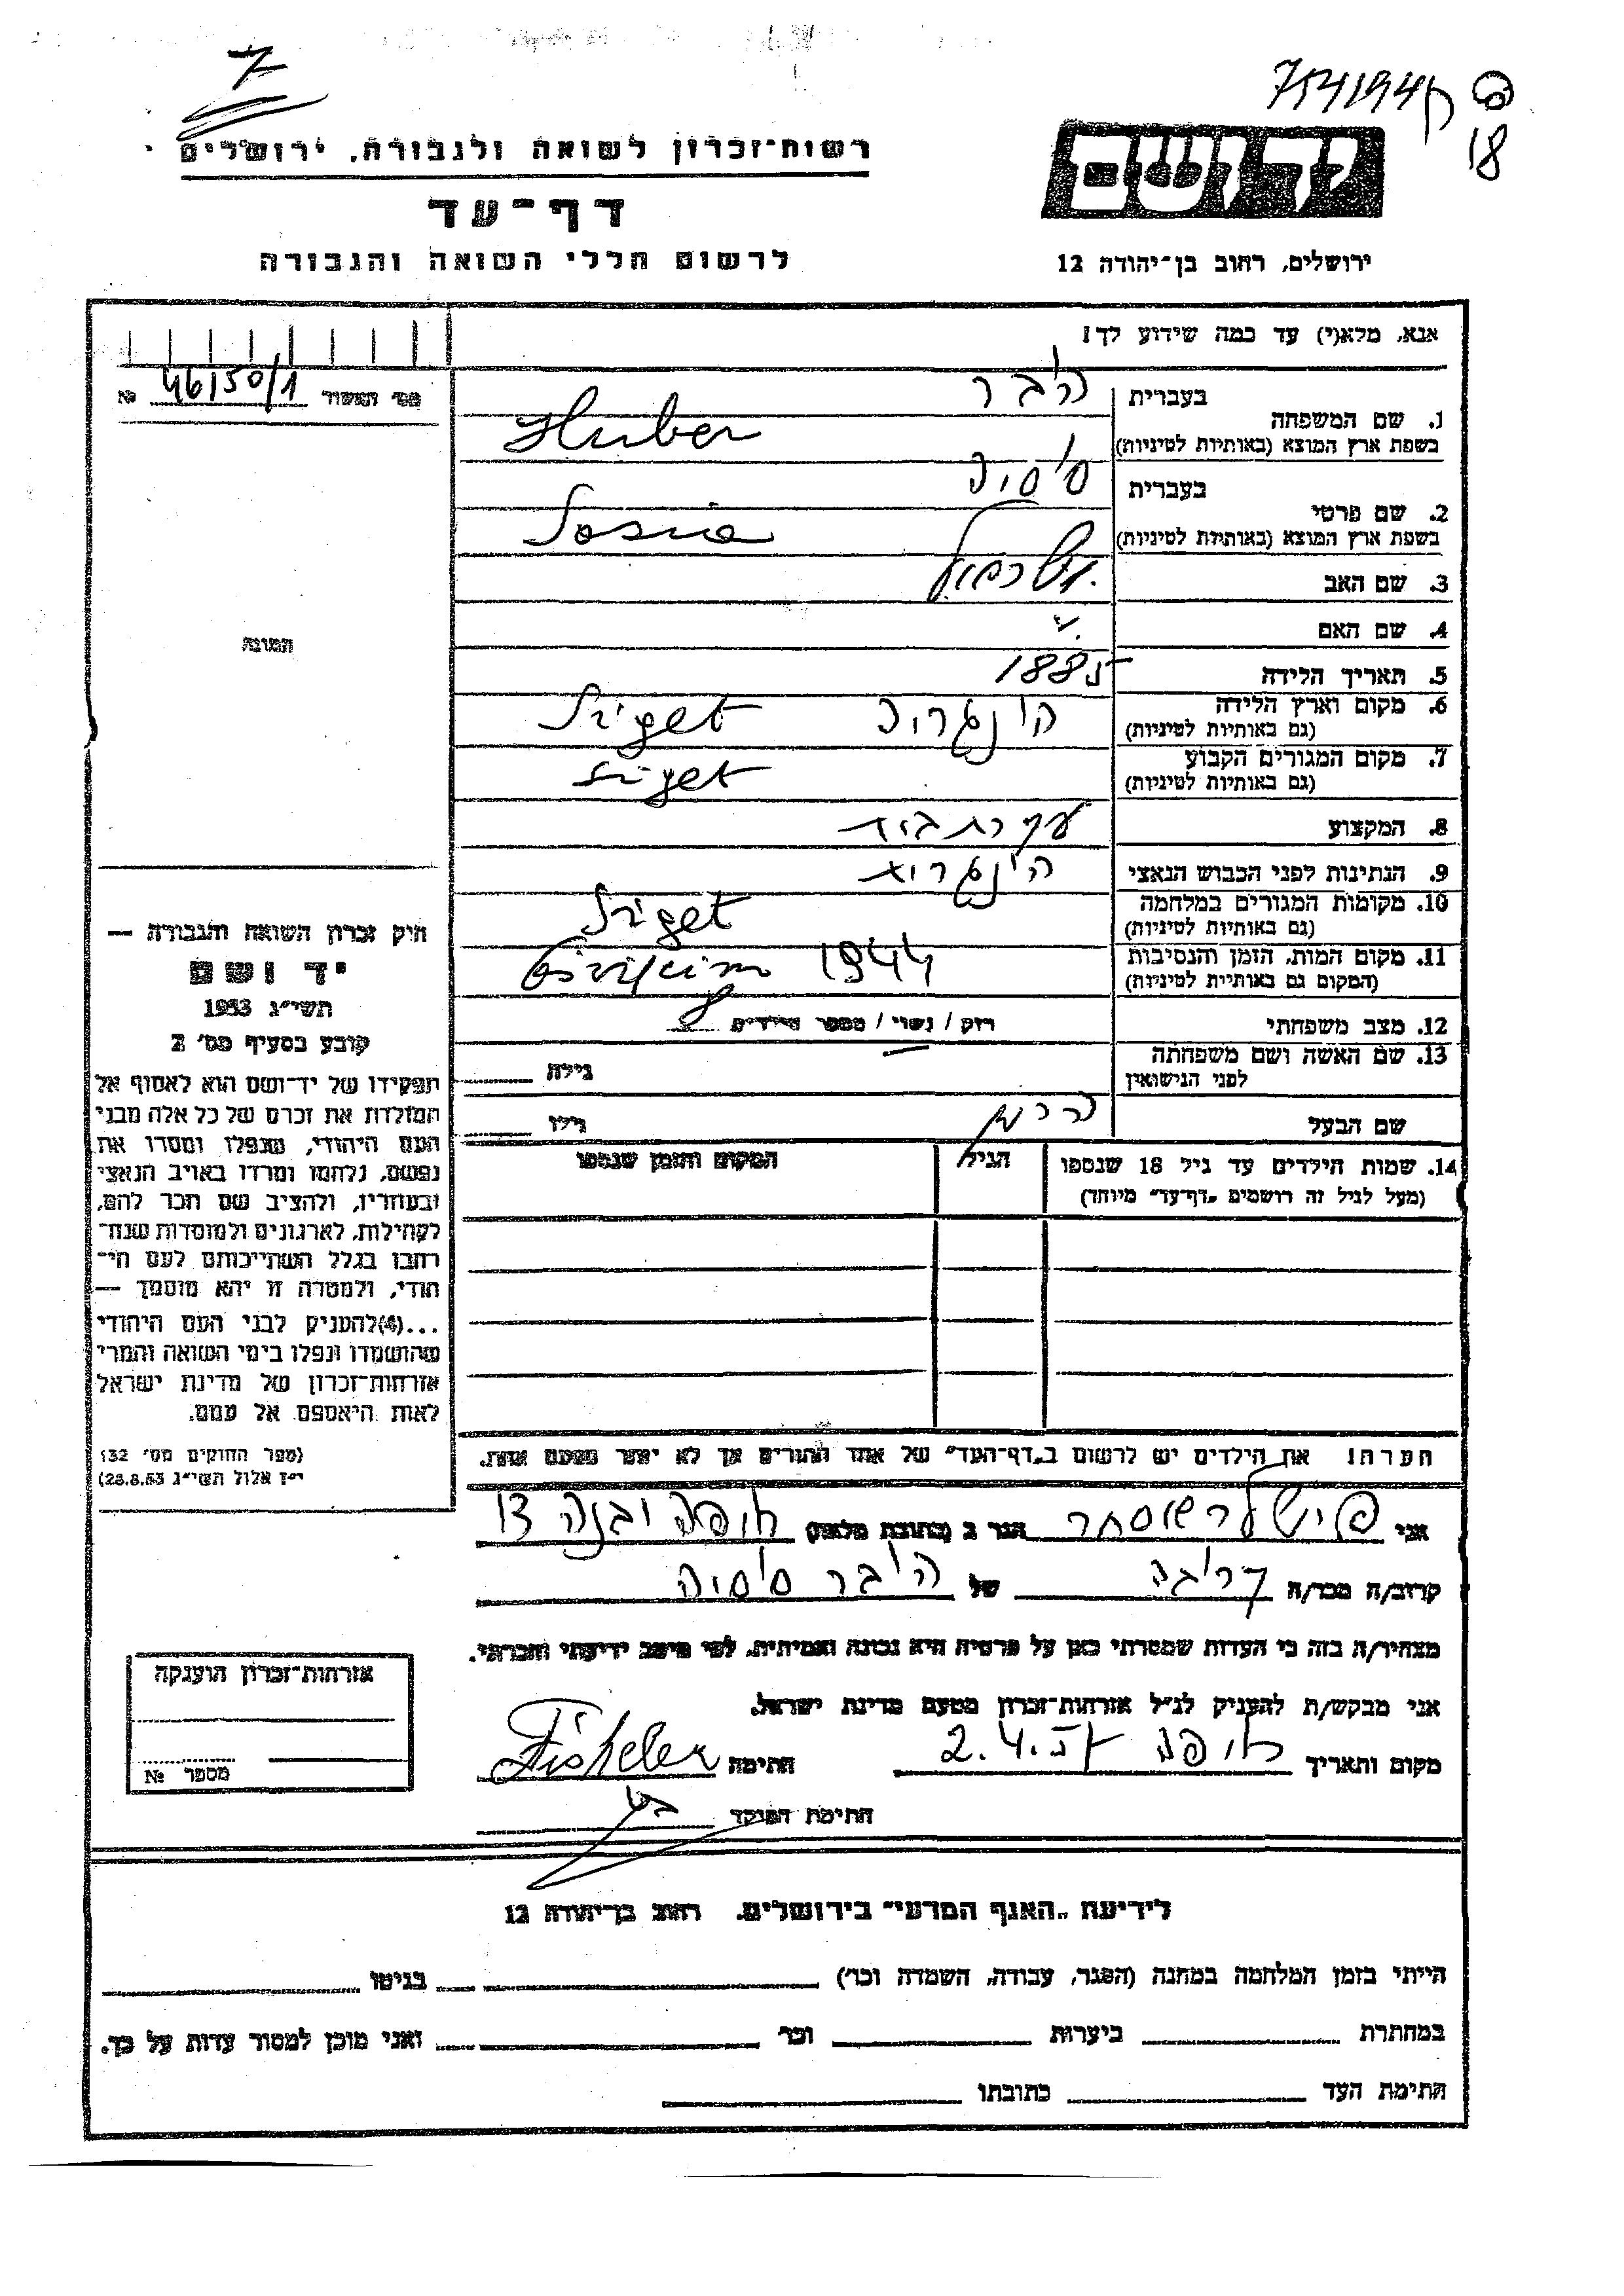 7
754194 ק
18
רשות-זכרון לשואה ולגבורה, ירושלים
דף-עד
לרשום חללי השואה והגבורה
יד ושם
ירושלים, רחוב בן-יהודה 12
אנא, מלא(י) עד כמה שידוע לך!
מס' תמשוך 46150/1 №
1. שם המשפחה
בעברית הובר
בשפת ארץ המוצא (באותיות לטיניות) Huber
2. שם פרטי
בעברית
בשפת ארץ המוצא (באותיות לטיניות)
3. שם האב
4. שם האם
5. תאריך הלידה 1885
6. מקום וארץ הלידה
(גם באותיות לטיניות) הונגריה Sziget
7. מקום המגורים הקבוע
(גם באותיות לטיניות) Sziget
8. המקצוע עקרת בית
9. הנתינות לפני הכבוש הנאצי הונגרית
10. מקומות המגורים במלחמה
(גם באותיות לטיניות) Sziget
11. מקום המות, הזמן והנסיבות
(המקום גם באותיות לטיניות) 1944
12. מצב משפחתי
רוק / נשוי / מספר הילדים 8
13. שם האשה ושם משפחתה
לפני הנישואין
גילה
שם הבעל
גילו
14. שמות הילדים עד גיל 18 שנספו
(מעל לגיל זה רושמים "דף-עד" מיוחד)
הגיל
המקום והזמן שנספו
הערה! את הילדים יש לרשום ב"דף-העד" של אחד ההורים אך לא יותר מפעם אחת.
תמונה
חוק זכרון השואה והגבורה —
יד ושם
תשי"ג 1953
קובע בסעיף מס' 2
תפקידו של יד-ושם הוא לאסוף אל
המולדת את זכרם של כל אלה מבני
העם היהודי, שנפלו ומסרו את
נפשם, נלחמו ומרדו באויב הנאצי
ובעוזריו, ולהציב שם וזכר להם,
לקהילות, לארגונים ולמוסדות שנח־
רבו בגלל השתייכותם לעם הי־
הודי, ולמטרה זו יהא מוסמך —
...(4)להעניק לבני העם היהודי
שהושמדו ונפלו בימי השואה והמרי
אזרחות-זכרון של מדינת ישראל
לאות היאספם אל עמם.
(ספר החוקים מס' 132
י"ז אלול תשי"ג 28.8.53)
אני פישלר אסתר הגר ב (כתובת מלאה) חיפה יבנה 13
קרוב/ה מכר/ה קרובה של הובר
מצהיר/ה בזה כי העדות שמסרתי כאן על פרטיה היא נכונה ואמיתית, לפי מיטב ידיעתי והכרתי.
אני מבקש/ת להעניק לנ"ל אזרחות-זכרון מטעם מדינת ישראל.
מקום ותאריך חיפה 2.4.57 חתימה Fischeler
חתימת הפוקד
אזרחות-זכרון הוענקה
מספר №
לידיעת "האגף המדעי" בירושלים, רחוב בן-יהודה 12
הייתי בזמן המלחמה במחנה (הסגר, עבודה, השמדה וכו') בגיטו
במחתרת ביערות וכו' ואני מוכן למסור עדות על כך.
חתימת העד כתובתו